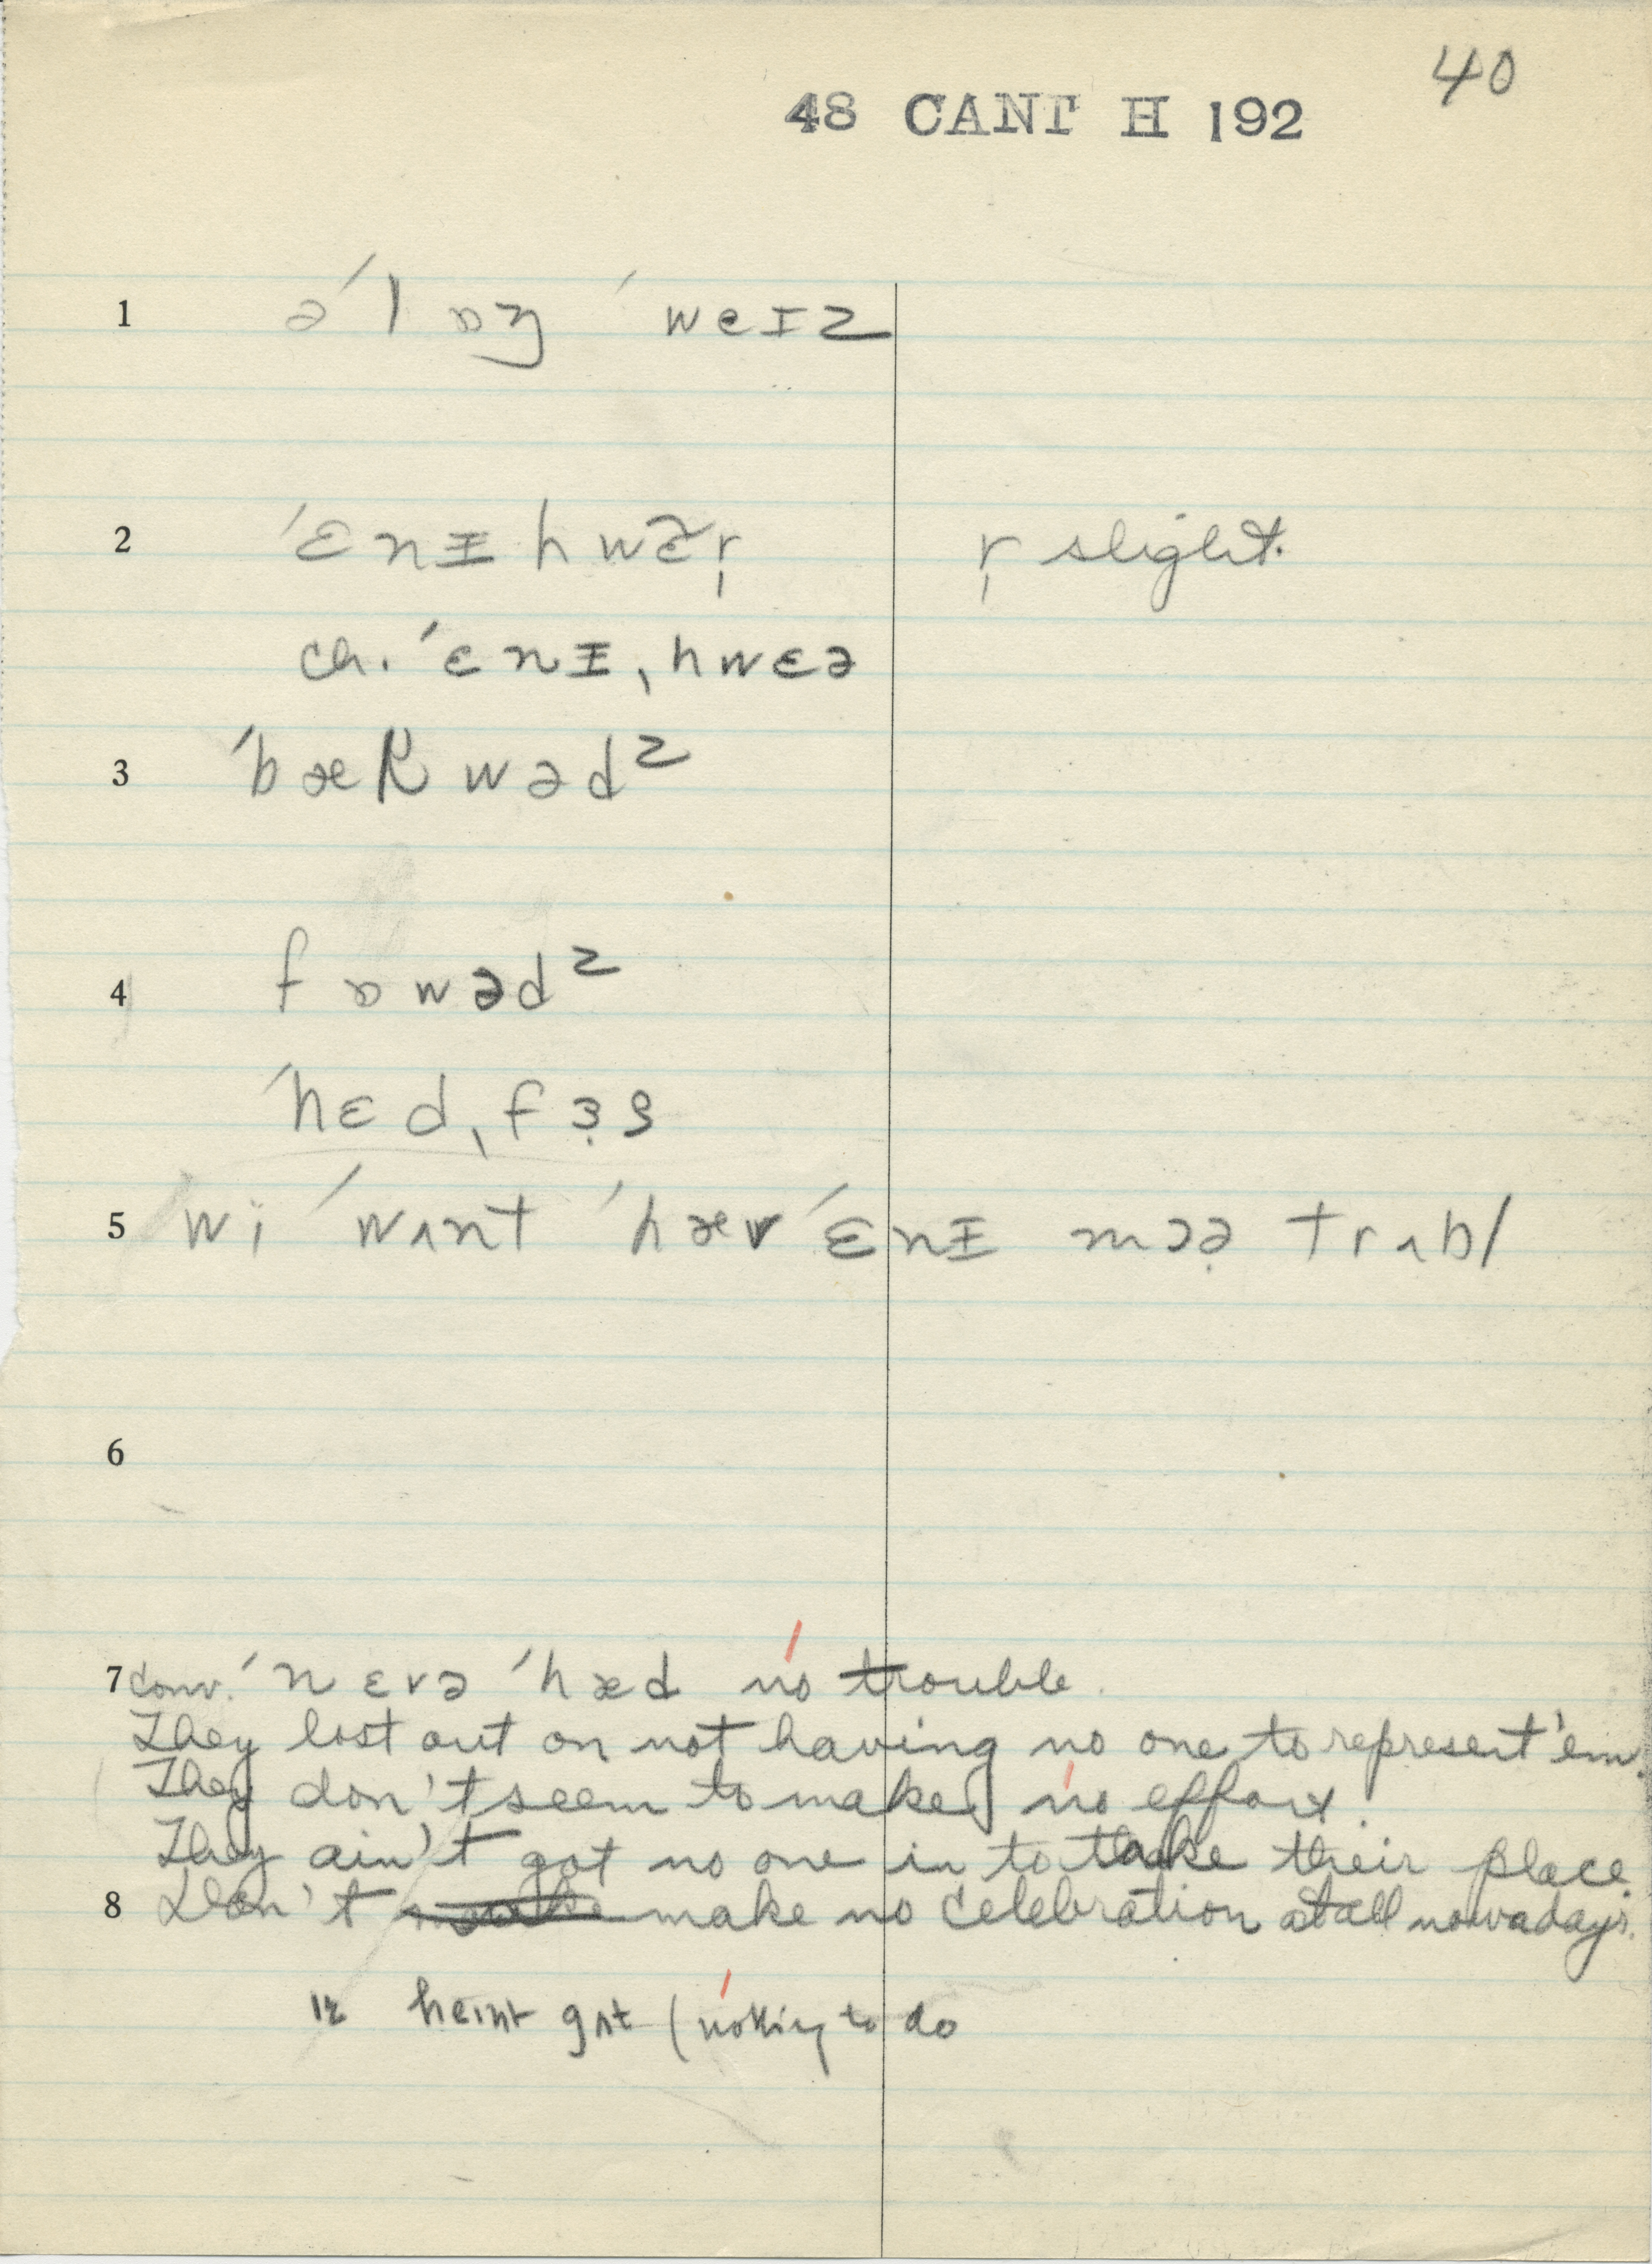 40
48 CANT H 192
1 əˈlɒŋ ˈweɪz
2 ˈɛnɪhwɛ̆r̩ r̩ slight.
ch. ˈɛnɪˌhwɛə
3 ˈbækwədᶻ
4 fɒwədᶻ
ˈhɛdˌfɜ̣s
5 wi ˈwʌnt ˈhæv ˈɛnɪ mɔə̣ trʌbl
6
7 conv. ˈnɛvə ˈhæd no trouble.
They lost out on not having no one to represent 'em.
They don't seem to make no effort.
They ain't got no one in to take their place.
8 Don't make no celebration at all nowadays.
heɪnt gʌt (nothing to do